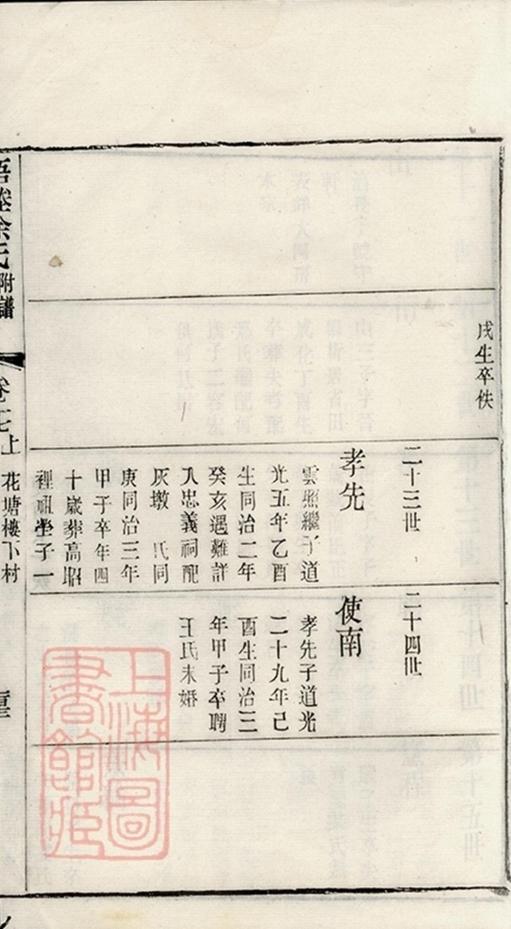 戌生卒佚
二十三世
孝先
雲照繼子道
光五年乙酉
生同治二年
癸亥遇難詳
入忠義祠配
灰墩 氏同
庚同治三年
甲子卒年四
十歲葬高昭
裡祖塋子一
二十四世
使南
孝先子道光
二十九年己
酉生同治三
年甲子卒聘
王氏未婚
余氏附譜
上
花塘樓下村
上海圖
書館藏